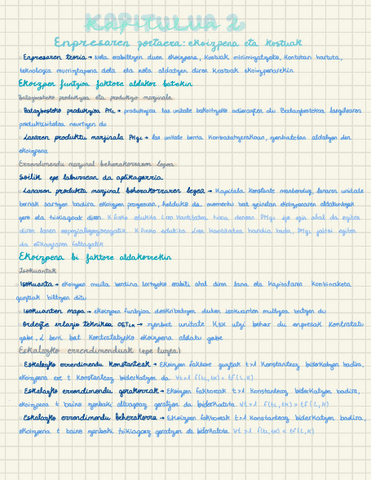 KAPITULUA 2
Enpresaren portaera: ekoizpena eta kostuak
· Enpresaren teoria → nola erabakitzen duen ekoizpena, kostuak minimizatzeko, kontutan hartuta,
teknologia murriztapena dela eta nola aldatzen diren kostuak ekoizpenarekin.
Ekoizpen funtzioa faktore aldakor batekin
Batazbesteko produkzioa eta produkzio marjinala
· Batazbesteko produkzioa PML → produkzioa, lan unitate bakoitzeko adierazten du. Batazbestekoa, langilearen
produktibitatea neurtzen du
· Lanaren produktu marjinala PMgL → lan unitate berria kontratatzerakoan, zenbatetan aldatzen den
ekoizpena
Errendimendu marjinal beherakorraren legea
Soilik epe laburrean da aplikagarria
· Lanaren produktu marjinal beherakorraren legea → kapitala konstante mantenduz, lanaren unitate
berriak sartzen badira ekoizpen prozesuan, helduko da momentu bat zeinetan ekoizpenaren aldakuntzak
gero eta txikiagoak diren. K finko edukita L-ren kantitatea txikia denean PMgL igo egin ahal da egiten
diren lanen espezializazioagatik. K finko edukita L-ren kantitatea handia bada, PMgL jaitsi egiten
da
Ekoizpena bi faktore aldakorrekin
Isokuantak
· Isokuanta → ekoizpen maila berdina lortzeko erabili ahal diren lana eta kapitalaren konbinaketa
guztiak biltzen ditu
· Isokuanten mapa → ekoizpena funtzioa deskribatzen duten isokuanten multzoa batzen du
· Ordezte erlazio teknikoa → zenbat unitate K utzi behar du enpresak kontratatu
gabe, L berri bat kontratatzeko ekoizpena aldatu gabe
Eskalazko errendimenduak (epe luzea)
· Eskalazko errendimendu konstanteak → Ekoizpen faktore guztiak t>1 konstanteaz biderkatzen badira,
ekoizpena ere t konstanteaz biderkatzen da ∀t>1 f(tL, tK) = tf(L, K)
· Eskalazko errendimendu gorakorrak → Ekoizpen faktoreak t>1 konstanteaz biderkatzen badira,
ekoizpena t baino zenbaki altuagoaz geratzen da biderkatuta ∀t>1 f(tL, tK) > tf(L, K)
· Eskalazko errendimendu beherakorra → Ekoizpen faktoreak t>1 konstanteaz biderkatzen badira
ekoizpena t baino zenbaki txikiagoaz geratzen da biderkatuta ∀t>1 f(tL, tK) < tf(L, K)